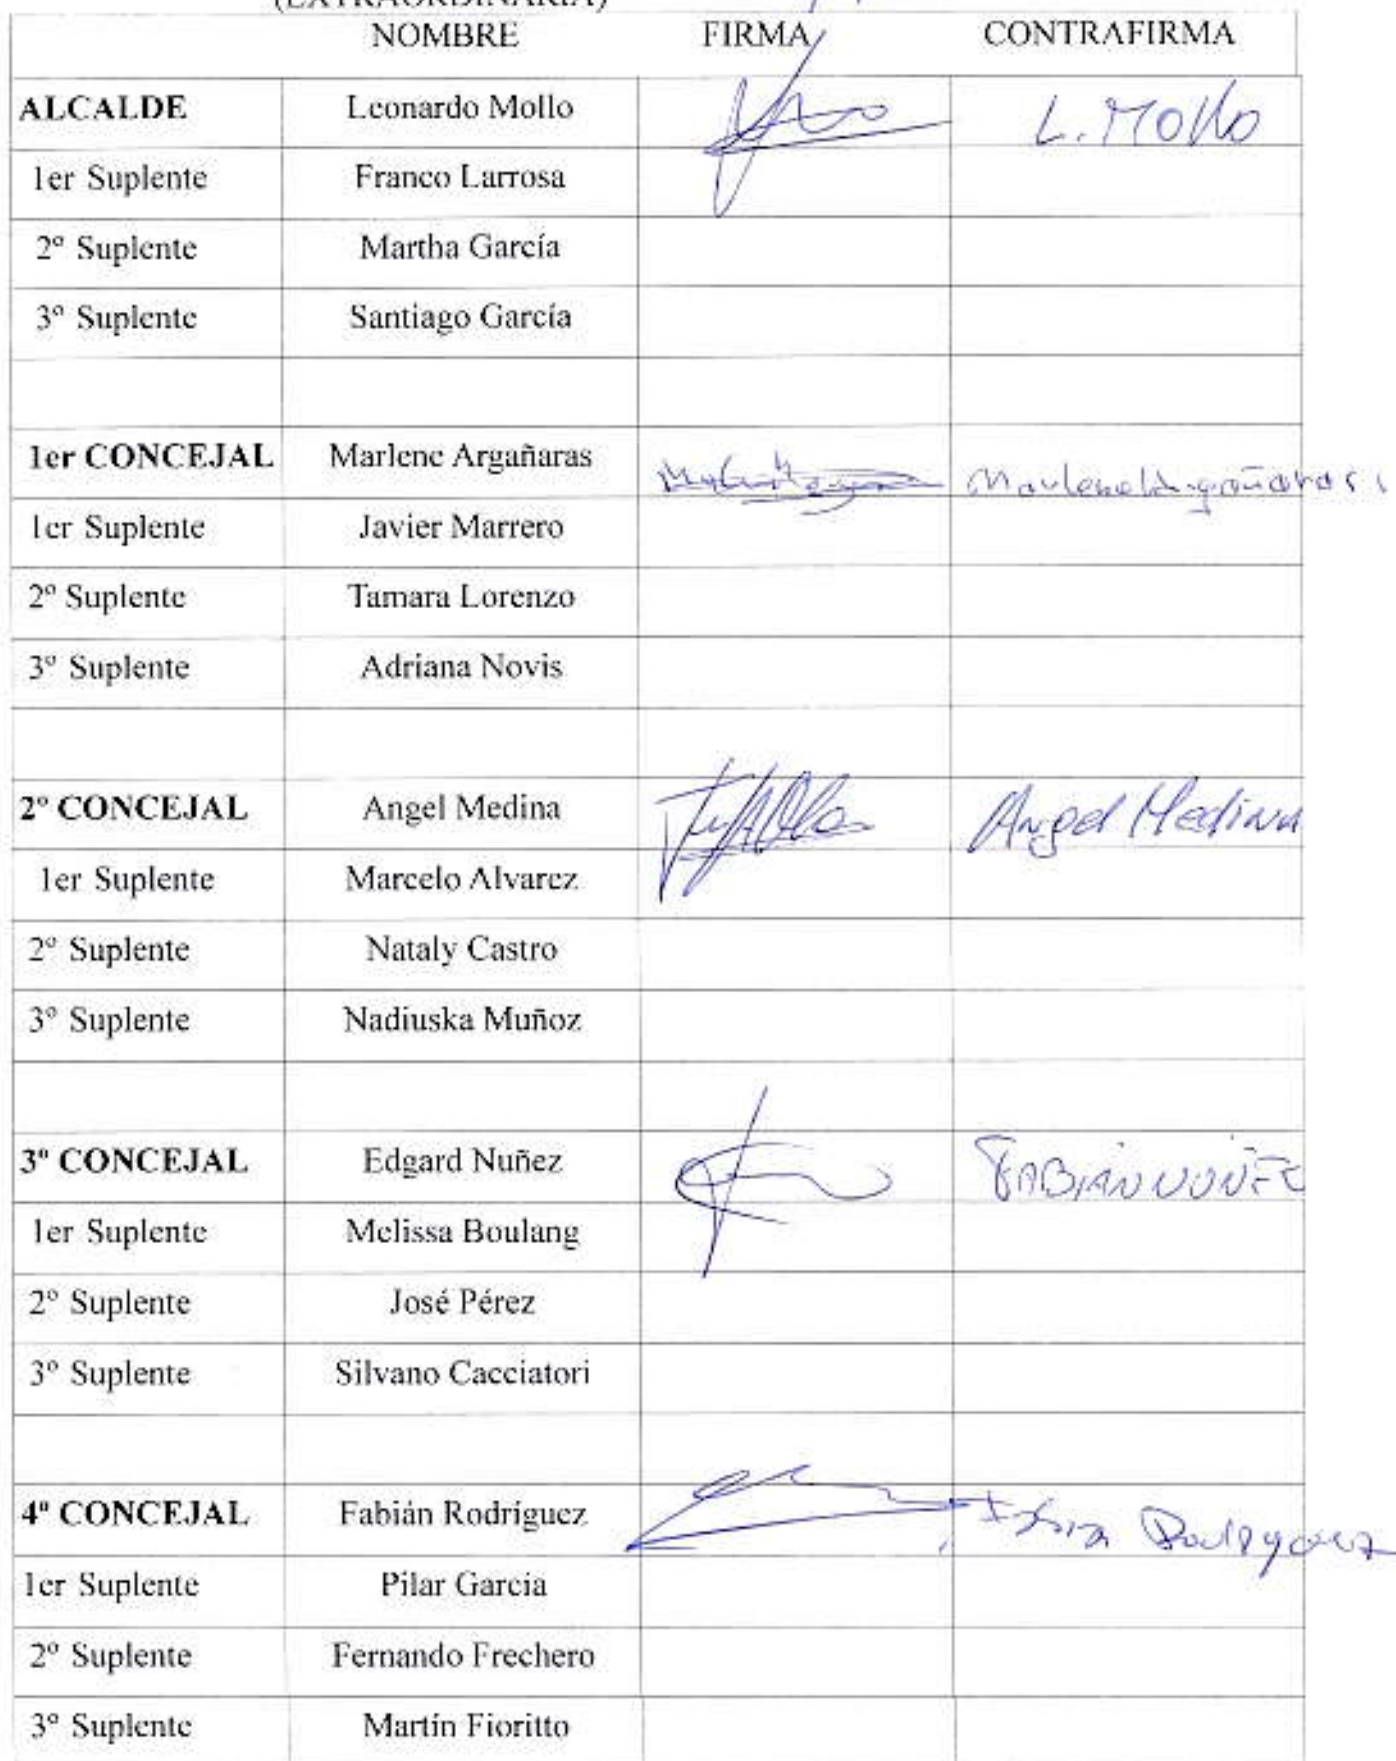 (EXTRAORDINARIA)
NOMBRE FIRMA CONTRAFIRMA
ALCALDE Leonardo Mollo L. Mollo
1er Suplente Franco Larrosa
2º Suplente Martha García
3º Suplente Santiago García
1er CONCEJAL Marlene Argañaras Marlene Argañaras
1er Suplente Javier Marrero
2º Suplente Tamara Lorenzo
3º Suplente Adriana Novis
2º CONCEJAL Angel Medina Angel Medina
1er Suplente Marcelo Alvarez
2º Suplente Nataly Castro
3º Suplente Nadiuska Muñoz
3º CONCEJAL Edgard Nuñez FABIÁN NUÑEZ
1er Suplente Melissa Boulang
2º Suplente José Pérez
3º Suplente Silvano Cacciatori
4º CONCEJAL Fabián Rodríguez Rodriguez
1er Suplente Pilar García
2º Suplente Fernando Frechero
3º Suplente Martín Fioritto